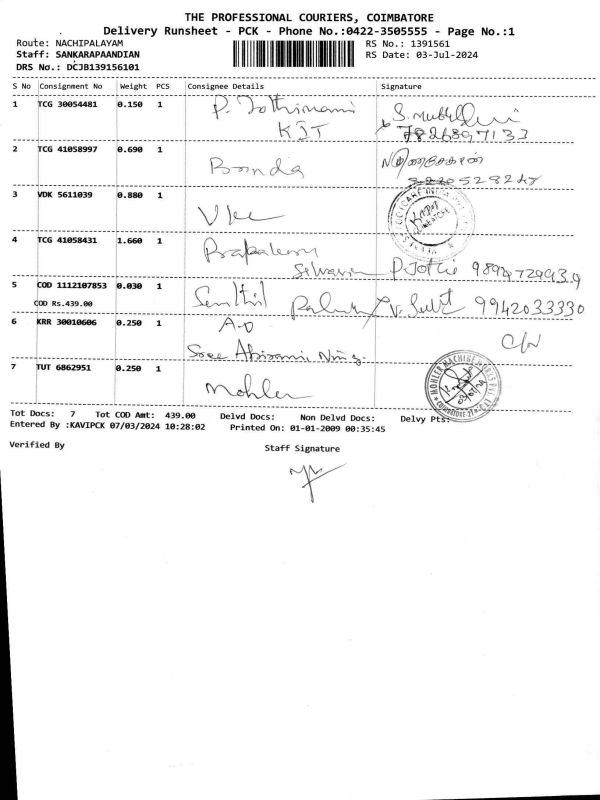 THE PROFESSIONAL COURIERS, COIMBATORE
Delivery Runsheet - PCK - Phone No.:0422-3505555 - Page No.:1
Route: NACHIPALAYAM RS No.: 1391561
Staff: SANKARAPAANDIAN RS Date: 03-Jul-2024
DRS No.: DCJB139156101
S No Consignment No Weight PCS Consignee Details Signature
1 TCG 30054481 0.150 1 P. Jothimani
KIT 7826897133
2 TCG 41058997 0.690 1 Bonda
3 VDK 5611039 0.880 1
4 TCG 41058431 1.660 1 P. Jothi
5 COD 1112107853 0.030 1 Senthil 9942033330
COD Rs.439.00
6 KRR 30010606 0.250 1 A-D
Sree Abirami
7 TUT 6862951 0.250 1 Mohler MOHLER MACHINE WORKS
Tot Docs: 7 Tot COD Amt: 439.00 Delvd Docs: Non Delvd Docs: Delvy Pts:
Entered By :KAVIPCK 07/03/2024 10:28:02 Printed On: 01-01-2009 00:35:45
Verified By Staff Signature